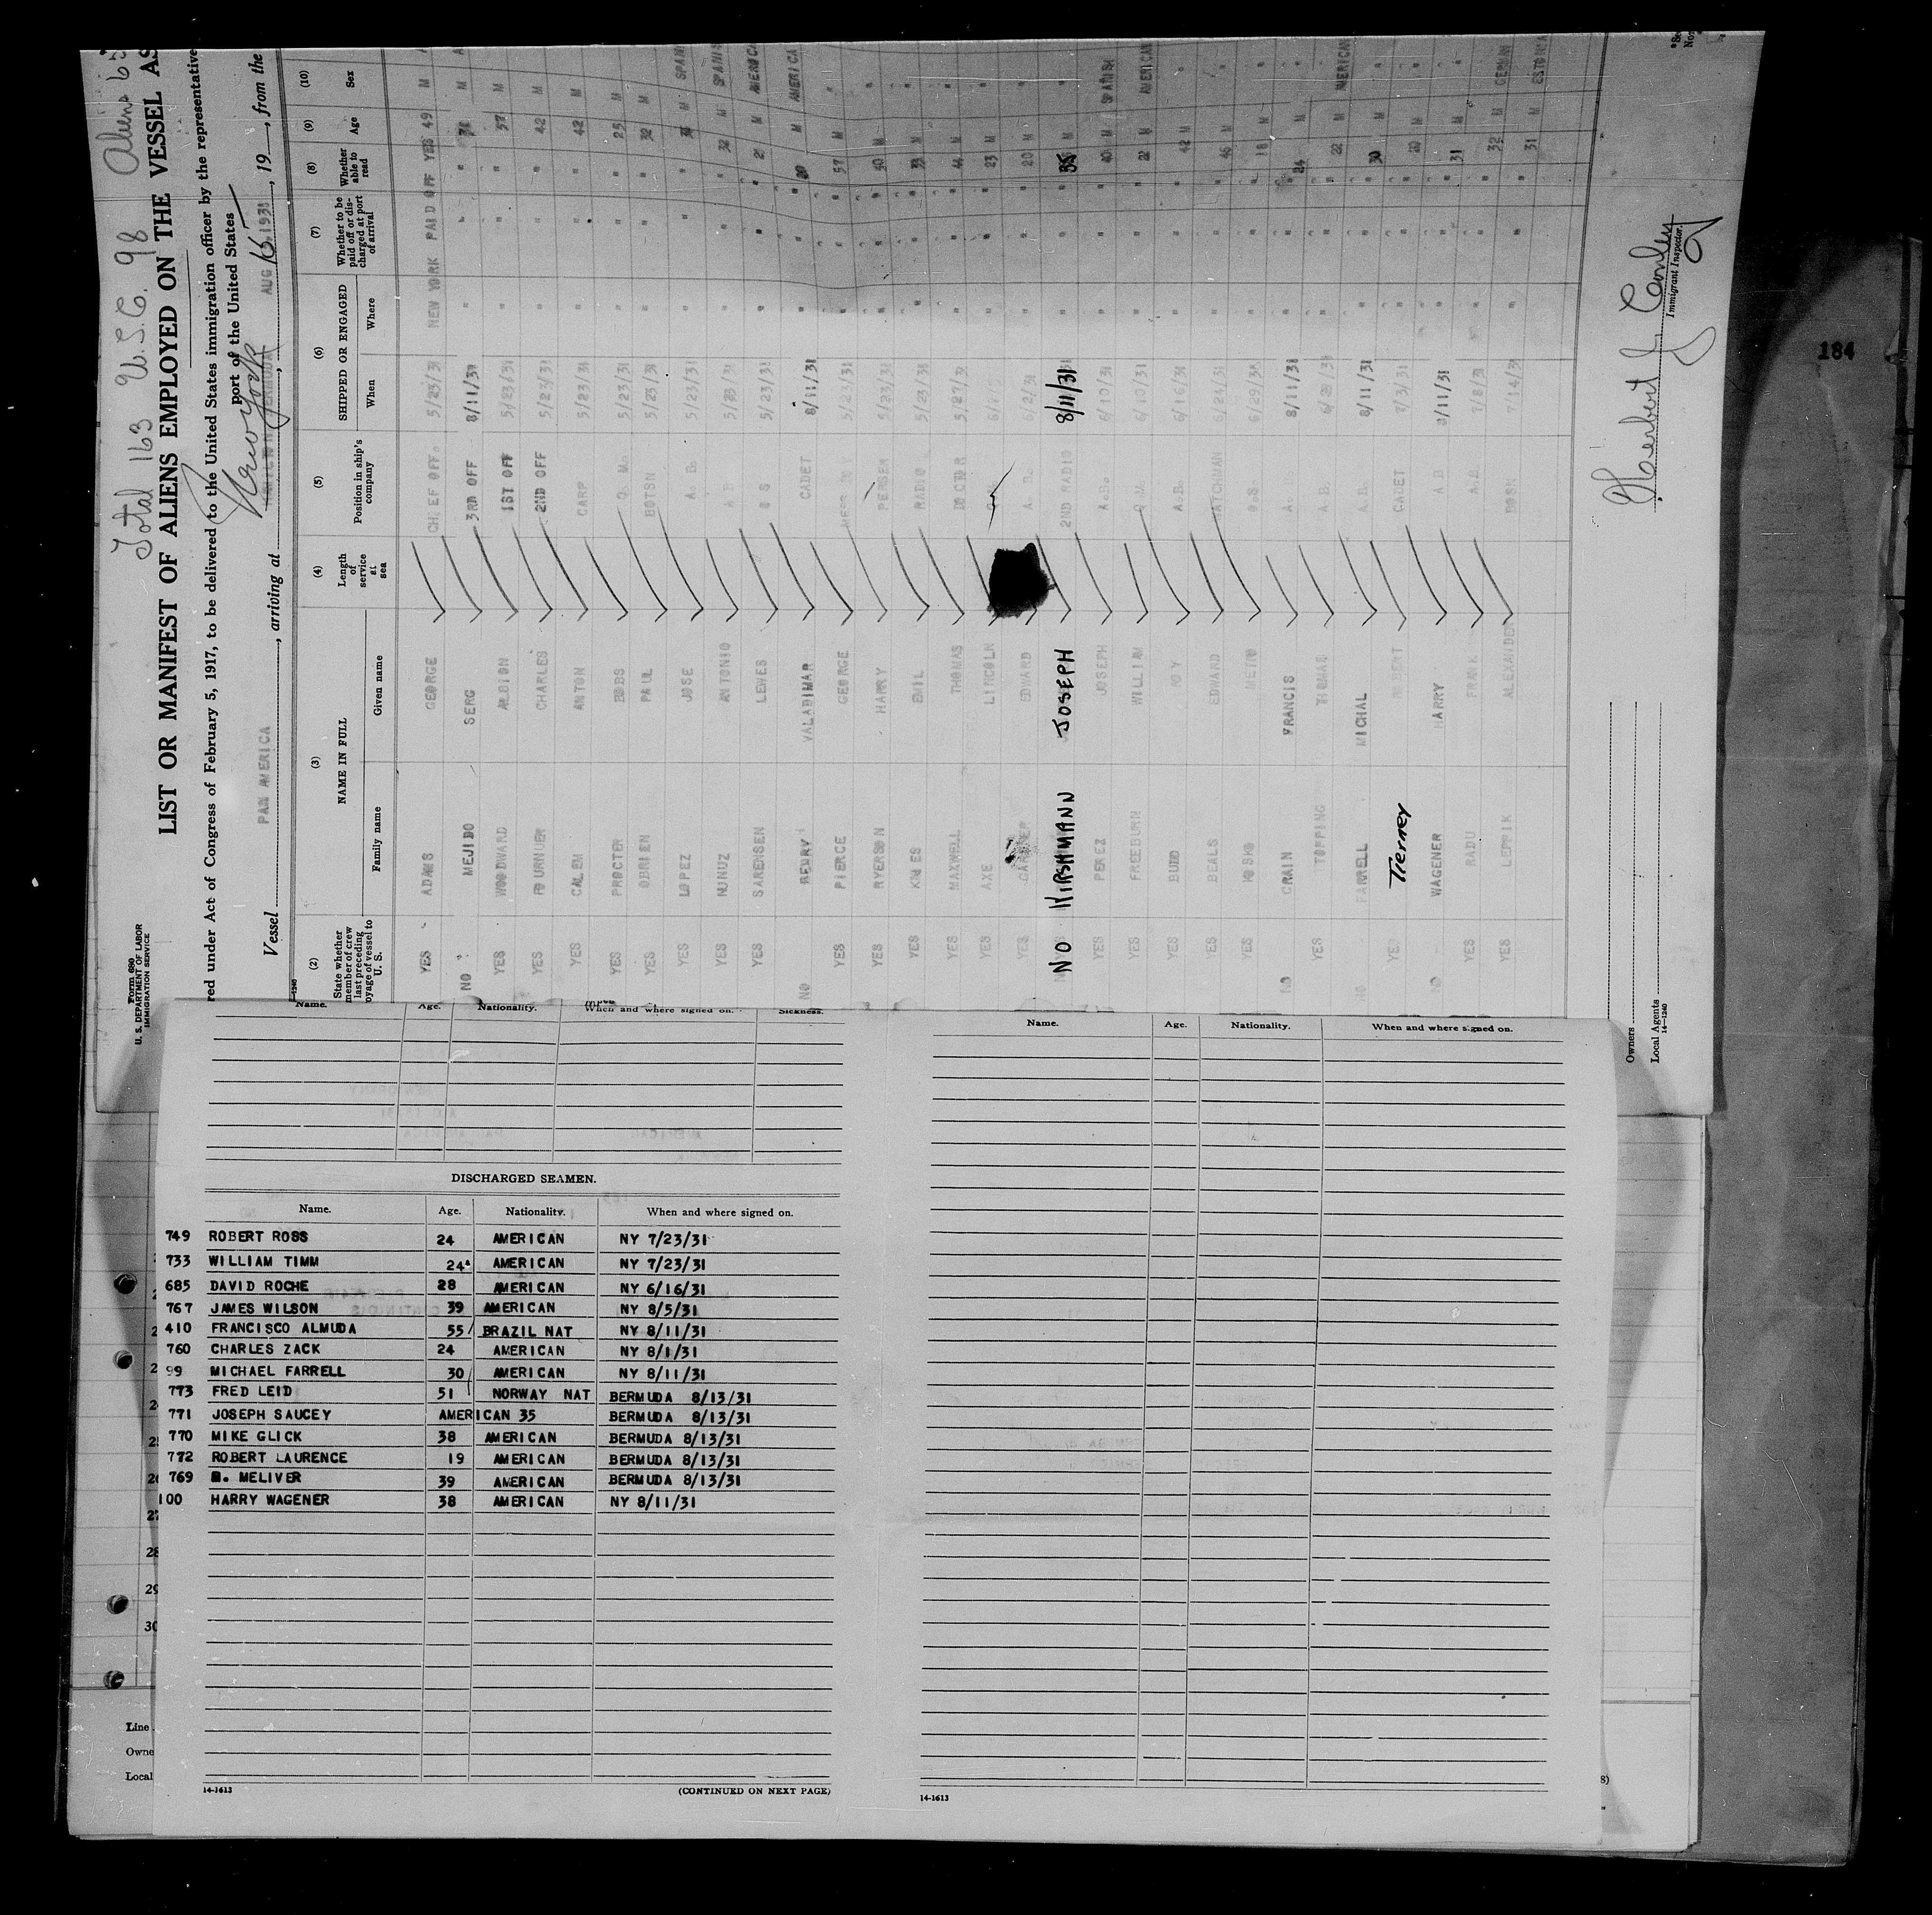 Total 163 U.S.C. 98 Aliens 65
Form 680
U. S. DEPARTMENT OF LABOR
IMMIGRATION SERVICE
LIST OR MANIFEST OF ALIENS EMPLOYED ON THE VESSEL AS
red under Act of Congress of February 5, 1917, to be delivered to the United States immigration officer by the representative
port of the United States
Vessel PAN AMERICA, arriving at New York, AUG 16 1931, 19__, from the
(2) (3) (4) (5) (6) (7) (8) (9) (10)
State whether member of crew last preceding voyage of vessel to U. S. NAME IN FULL Family name Given name Length of service at sea Position in ship's company SHIPPED OR ENGAGED When Where Whether to be paid off or discharged at port of arrival Whether able to read Age Sex
YES ADAMS GEORGE CHIEF OFF. 5/23/31 NEW YORK PAID OFF YES 49 M
NO MEJIDO SERG 3RD OFF 8/11/31 " " " M
YES WOODWARD ALBION 1ST OFF 5/23/31 " " " 37 M
YES FOURNUER CHARLES 2ND OFF 5/23/31 " " " 42 M
YES CALEM ANTON CARP 5/23/31 " " " 42 M
YES PROCTER BOBS Q. M. 5/23/31 " " " 25 M
YES OBRIEN PAUL BOTSN 5/23/31 " " " 32 M
YES LOPEZ JOSE A. B. 5/23/31 " " " M SPANI
YES NUNUZ ANTONIO A B 5/23/31 " " " 32 M SPANIS
YES SARENSEN LEWES O S 5/23/31 " " " 21 M AMERICA
NO BERRY VALADIMAR CADET 8/11/31 " " " 20 M AMERICA
YES PIERCE GEORGE 5/23/31 " " " 57 M "
YES RYERSON HARRY PERSER 5/23/31 " " " 50 M "
YES EMIL RADIO 5/23/31 " " " 33 M "
YES MAXWELL THOMAS DOCTER 5/27/31 " " " 44 M "
YES AXE LINCOLN " " " 23 M "
YES GARDNER EDWARD A. B. 6/2/31 " " " 20 M "
NO HIRSHMANN JOSEPH 2ND RADIO 8/11/31 " " " 35 M "
YES PEREZ JOSEPH A.B. 6/10/31 " " " 40 M SPANISH
YES FREEBURN WILLIAM Q.M. 6/10/31 " " " 22 M AMERICAN
YES BUDD ROY A.B. 6/16/31 " " " 42 M "
YES BEALS EDWARD WATCHMAN 6/24/31 " " " 46 M "
YES KOSKO METRO O.S. 6/29/31 " " " 18 M "
NO CRAIN FRANCIS 8/11/31 " " " 24 M "
YES TOPPING THOMAS A. B. 6/29/31 " " " 22 M AMERICAN
NO FARRELL MICHAL A.B. 8/11/31 " " " 30 M "
YES Tierney ROBERT CADET 7/3/31 " " " 20 M "
NO WAGENER HARRY A B 8/11/31 " " " 31 M "
YES RADU FRANK A.B. 7/8/31 " " " 32 M GERMAN
YES LEPPIK ALEXANDER BOSN 7/14/31 " " " 31 M ESTONIA
Herbert J Conley
Immigrant Inspector.
Owners
Local Agents
14—1240
184
Name. Age. Nationality. When and where signed on. Sickness.
DISCHARGED SEAMEN.
Name. Age. Nationality. When and where signed on.
749 ROBERT ROSS 24 AMERICAN NY 7/23/31
733 WILLIAM TIMM 24 AMERICAN NY 7/23/31
685 DAVID ROCHE 28 AMERICAN NY 6/16/31
767 JAMES WILSON 39 AMERICAN NY 8/5/31
410 FRANCISCO ALMUDA 55 BRAZIL NAT NY 8/11/31
760 CHARLES ZACK 24 AMERICAN NY 8/1/31
99 MICHAEL FARRELL 30 AMERICAN NY 8/11/31
773 FRED LEID 51 NORWAY NAT BERMUDA 8/13/31
771 JOSEPH SAUCEY AMERICAN 35 BERMUDA 8/13/31
770 MIKE GLICK 38 AMERICAN BERMUDA 8/13/31
772 ROBERT LAURENCE 19 AMERICAN BERMUDA 8/13/31
769 MELIVER 39 AMERICAN BERMUDA 8/13/31
100 HARRY WAGENER 38 AMERICAN NY 8/11/31
27
28
29
30
14-1613 (CONTINUED ON NEXT PAGE)
Line
Owne
Local
Name. Age. Nationality. When and where signed on.
14-1613